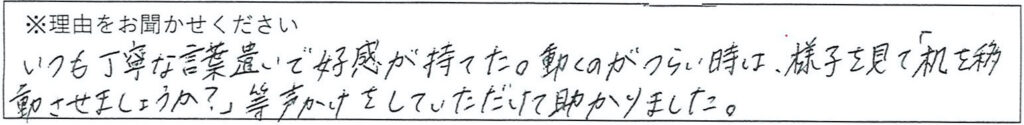 ※理由をお聞かせください
いつも丁寧な言葉遣いで好感が持てた。動くのがつらい時は、様子を見て「机を移
動させましょうか?」等声かけをしていただけて助かりました。